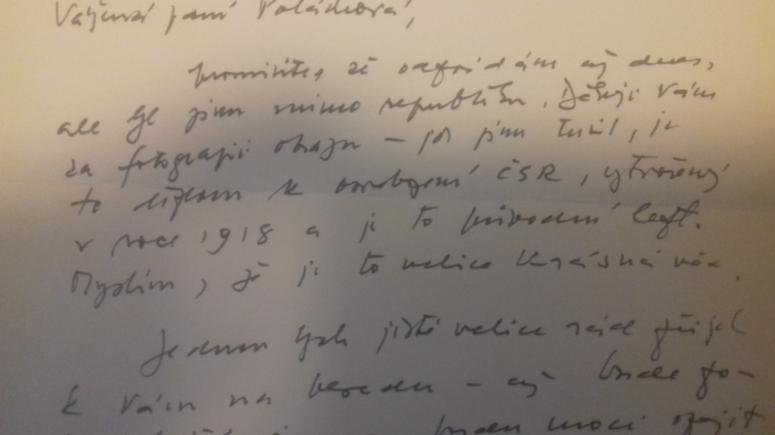 Vážená paní Poláchová,
promiňte, že odpovídám až dnes,
ale byl jsem mimo republiku. Děkuji Vám
za fotografii obrazu – jak jsem tušil, je
to k osvobození ČSR, vytvořený
v roce 1918 a je to původní
Myslím, že je to velice krásná věc.
Jednou bych jistě velice rád přijel
k Vám na besedu – až bude
budu moci spojit